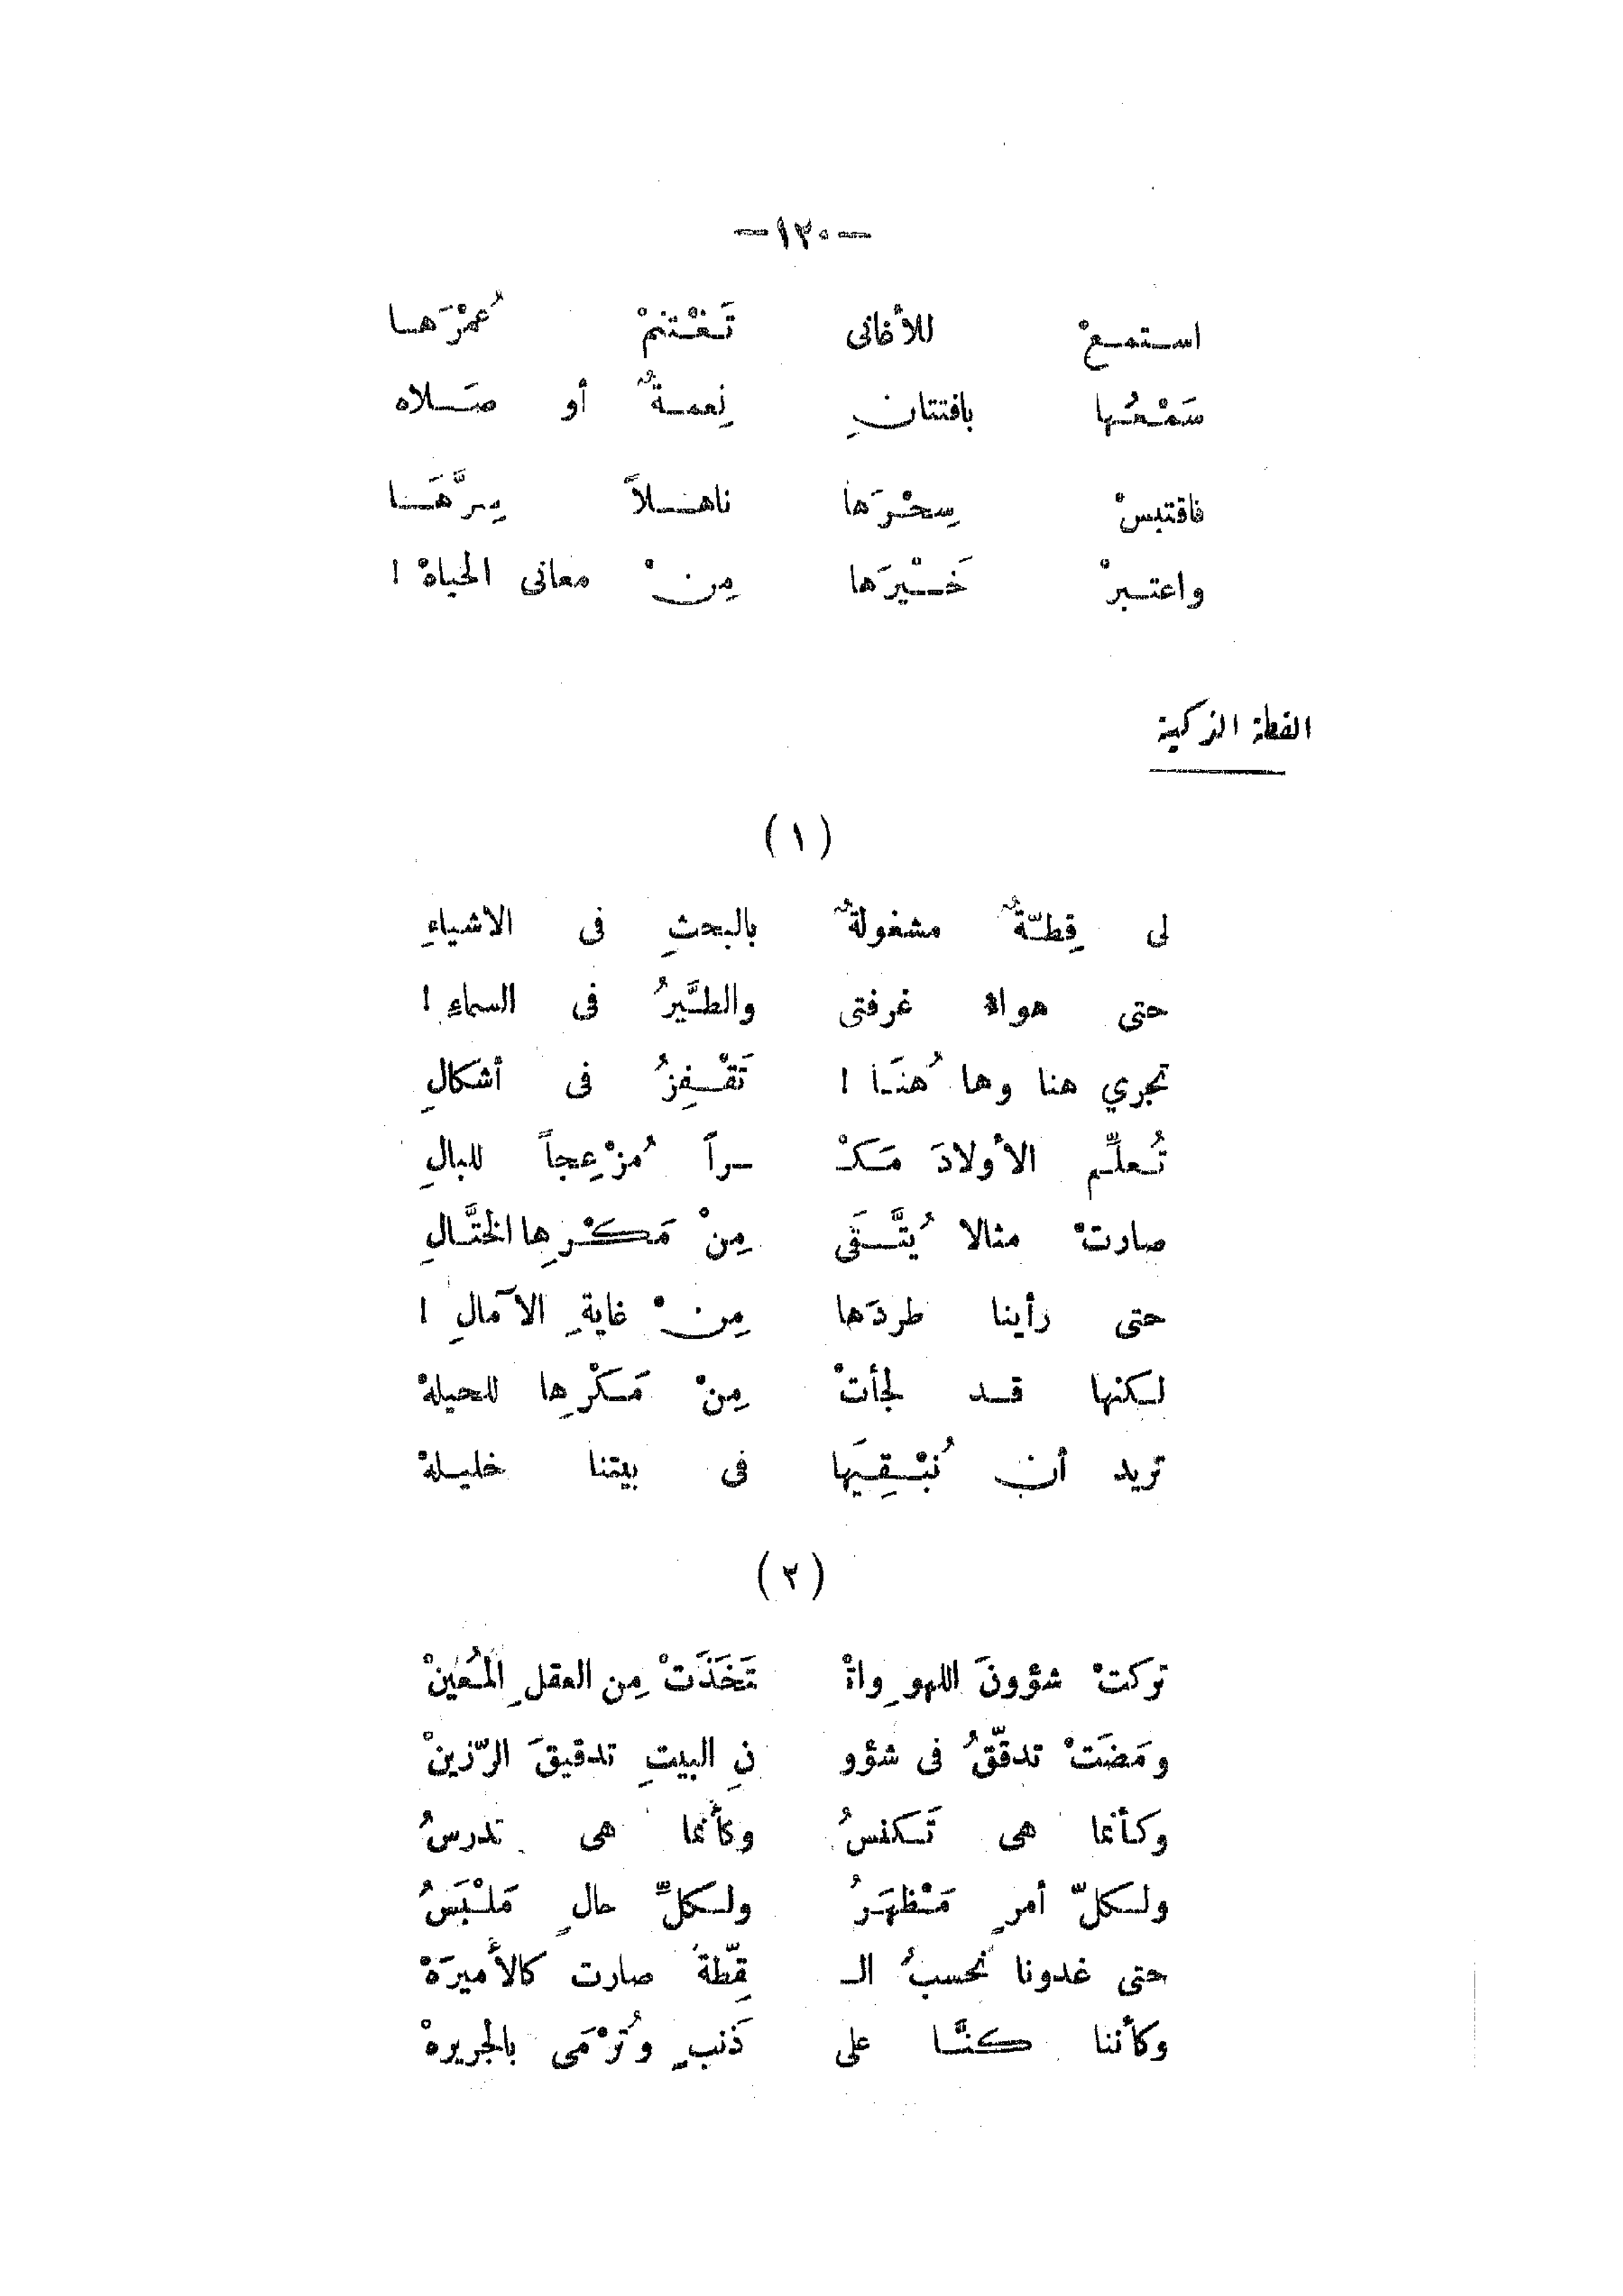 -١٢٠-
استمعْ للأغانى تَغْتنمْ عُمْرَها
سَمْعُها بافتتانِ نِعمةٌ أو صَلاه
فاقتبسْ سِحْرَها ناهلاً سِرَّهَا
واعتبرْ خَيْرَها مِنْ معانى الحياهْ !
القطة الذكية
( ١ )
لى قِطّةٌ مشغولةٌ بالبحثِ فى الاشياءِ
حتى هواءُ غرفتى والطَّيرُ فى السماءِ !
تجري هنا وها هُنَا ! تَقْفِزُ فى أشكالِ
تُعلِّم الأولادَ مَكْـ ـراً مُزْعِجاً للبالِ
صارتْ مثالا يُتَّقَى مِنْ مَكْرِها الختَّالِ
حتى رأينا طردَها مِنْ غايةِ الآمالِ !
لكنها قد لجأتْ مِنْ مَكْرِها للحيلهْ
تريد أن نُبْقِيَها فى بيتنا خليلهْ
( ٢ )
تركتْ شؤونَ اللهوِ واتْـ ـتَخَذَتْ مِن العقلِ المُعينْ
ومَضَتْ تدقّقُ فى شؤو نِ البيتِ تدقيقَ الرّزينْ
وكأنما هى تَكنسُ وكأنما هى تدرسُ
ولكلّ أمرٍ مَظْهَرُ ولكلِّ حالٍ مَلْبَسُ
حتى غدونا نحسبُ الـ قِطّةَ صارت كالأميرَهْ
وكأننا كنَّا على ذَنبٍ وتُرْمَى بالجريرهْ